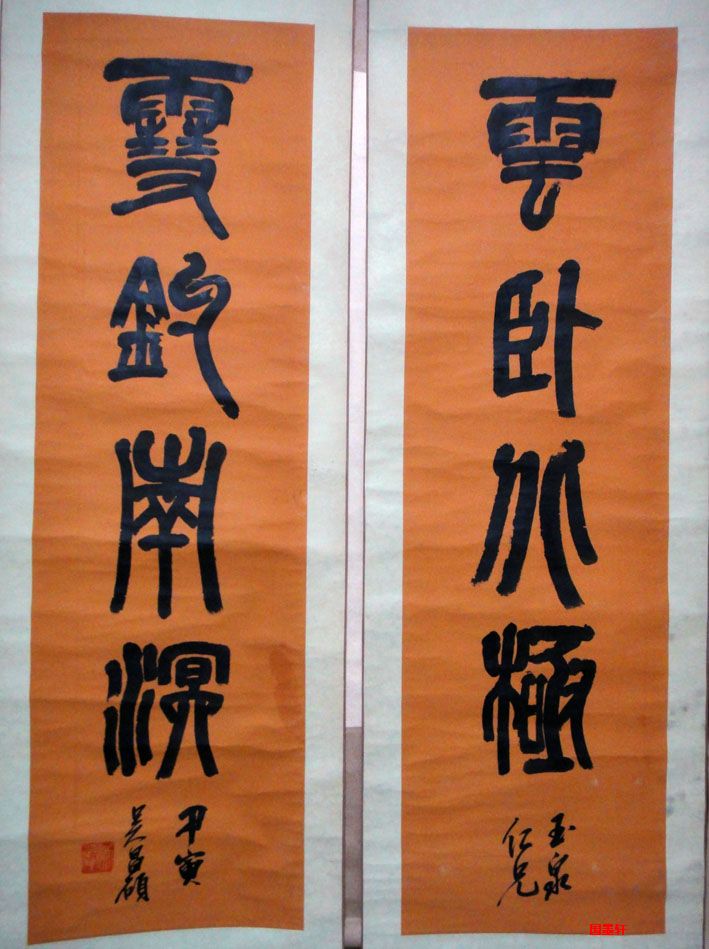 雲卧北極
玉泉
仁兄
雪釣南溟
甲寅
吴昌碩
国墨轩